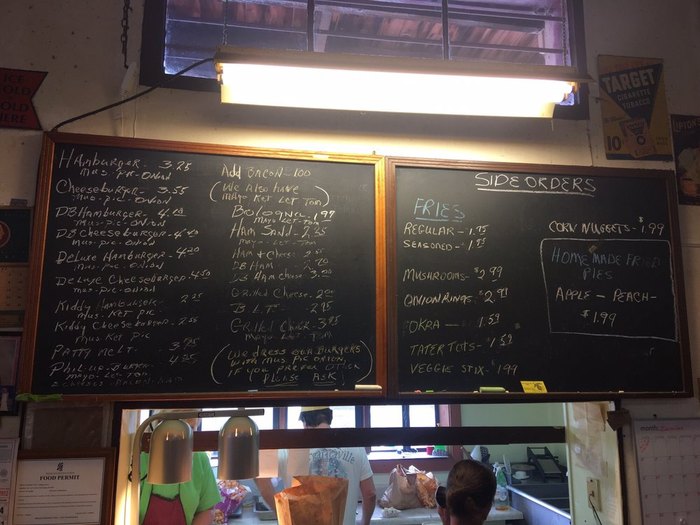 HAmburger - 3.25
mus. Pic - ONiON
Cheeseburger - 3.55
mus - pic - ONiON
DB HAmburger -
mus - pic - ONiON
DB Cheeseburger -
mus - pic - ONiON
DeLuxe HAmburger - 4.20
mus - pic - ONiON
DeLuxe Cheeseburger - 4.50
mus - pic - ONiON
Kiddy HAmburger - 2.25
mus Ket Pic
Kiddy Cheeseburger - 2.55
mus Ket Pic
PATTY MELT - 3.95
4.25
Add BACON - 1.00
(We Also have
mAyo Ket Let Tom)
Bologna 1.97
mAyo - Let - Tom
HAm SAnd - 2.35
mAyo - LeT - Tom
HAm & Cheese
DB HAm
DB HAm cheese - 3.00
Grilled Cheese - 2.00
B L T - 2.95
Grilled Chick - 3.95
mAyo Let Tom
(We dress our BURGERS
WiTH mus. Pic ONiON
IF YOU PREFER OTHER
PLeASe ASK)
SIDE ORDERS
FRIES
REGULAR - 1.75
SEASONED -
MUSHROOMS - $2.99
ONION RINGS - $2.99
OKRA - 1.59
TATER TOTS - $1.59
VEGGIE STIX - 1.99
CORN NUGGETS - $1.99
HOME MADE FRIED
PIES
APPLE - PEACH -
$1.99
ICE
COLD
SOLD
HERE
TARGET
CIGARETTE
TOBACCO
10
LIPTON
FOOD PERMIT
month: